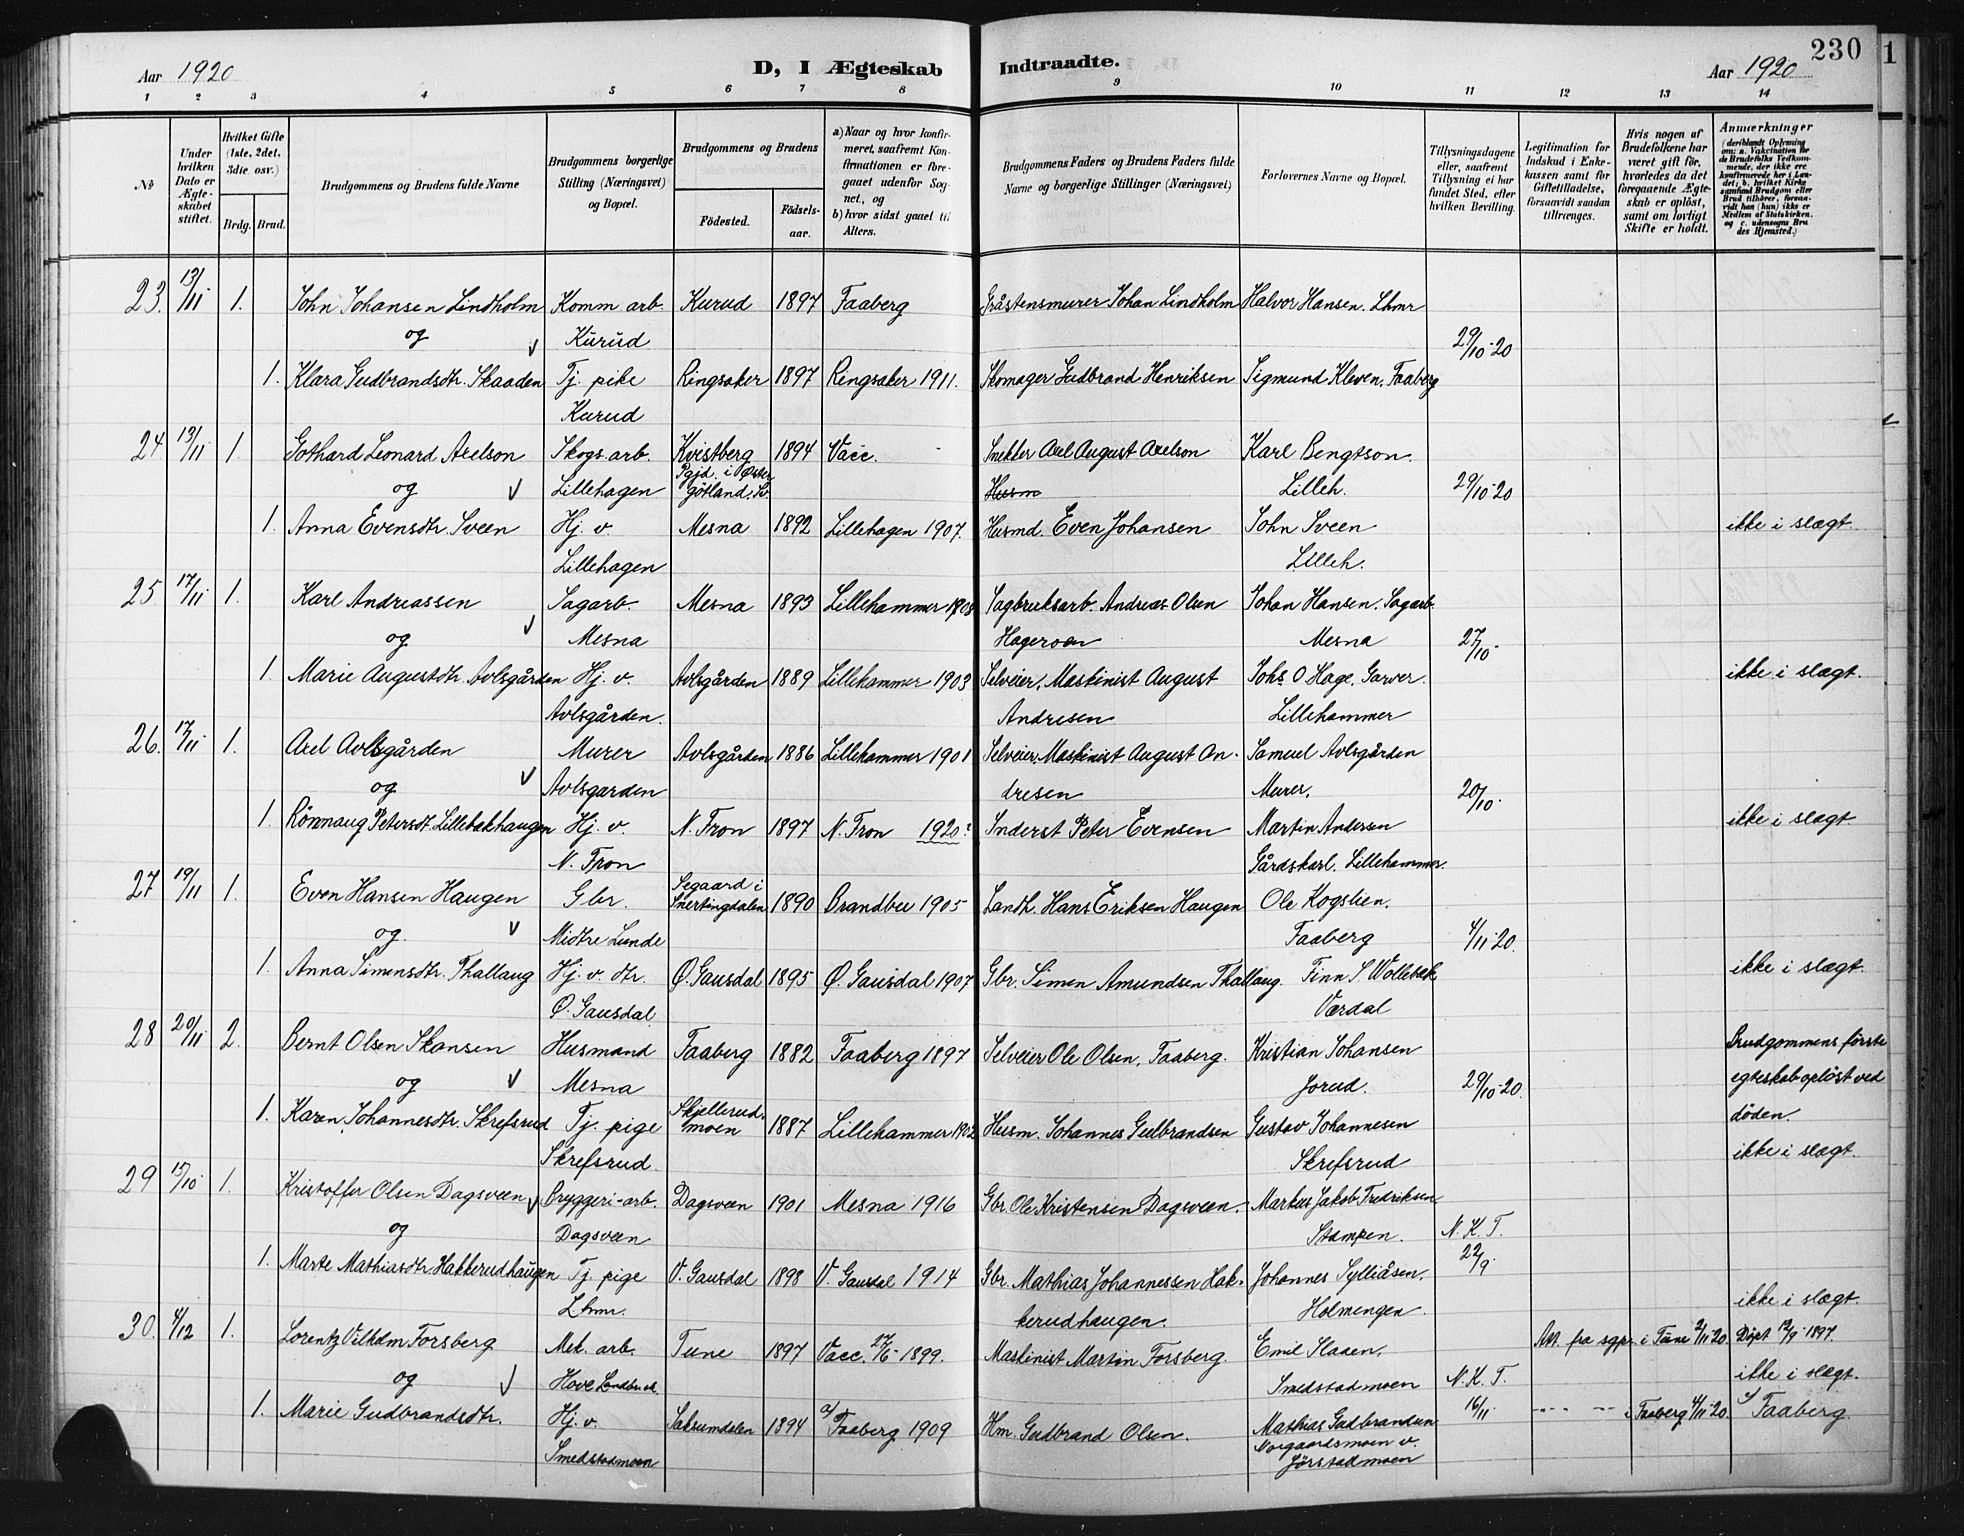 Aar 1920
D, I Ægteskab
Indtraadte.
Aar 1920
230
1
1 2 3 4 5 6 7 8 9 10 11 12 13 14
No
Under hvilken Dato er Ægteskabet stiftet.
Hvilket Gifte (1ste, 2det, 3die osv.)
Brdg. Brud.
Brudgommens og Brudens fulde Navne
Brudgommens borgerlige Stilling (Næringsvei) og Bopæl.
Brudgommens og Brudens
Fødested.
Fødselsaar.
a) Naar og hvor konfirmeret, saafremt Konfirmationen er foregaaet udenfor Sognet, og
b) hvor sidst gaaet til Alters.
Brudgommens Faders og Brudens Faders fulde Navne og borgerlige Stillinger (Næringsvei)
Forlovernes Navne og Bopæl.
Tillysningsdagene eller, saafremt Tillysning ei har fundet Sted, efter hvilken Bevilling.
Legitimation for Indskud i Enkekassen samt for Giftetilladelse, forsaavidt saadan tiltrænges.
Hvis nogen af Brudefolkene har været gift før, hvorledes da det foregaaende Ægteskab er opløst, samt om lovligt Skifte er holdt.
Anmærkninger (deriblandt Oplysning om: a. Vakcination for de Brudefolks Vedkommende, der ikke ere konfirmerede her i Landet; b. hvilket Kirkesamfund Brudgom eller Brud tilhører, forsaavidt han (hun) ikke er Medlem af Statskirken, og c. udensogns Brudes Hjemsted.)
23. 13/11 1. John Johansen Lindholm Komm arb. Kurud 1897 Faaberg Gråstensmurer Johan Lindholm Halvor Hansen. Lhmr
og Kurud 29/10-20
1. Klara Gudbrandsdtr. Skaaden Tj. pike Ringsaker 1897 Ringsaker 1911. Skomager Gudbrand Henriksen Sigmund Kleven. Faaberg
Kurud
24. 13/11 1. Gothard Leonard Axelson Skogs.arb. Kvistberg 1894 Vacc. - Snekker Axel August Axelson Karl Bengtson.
og Lillehagen Pgjd. i Øster götland. Sv. Husm Lilleh. 29/10-20
1. Anna Evensdtr. Sveen Hj. v. Mesna 1892 Lillehagen 1907. Husmd. Even Johansen John Sveen ikke i slægt.
Lillehagen Lilleh.
25. 17/11 1. Karl Andreassen Sagarb. Mesna 1893 Lillehammer 1908 Sagbruksarb. Andreas Olsen Johan Hansen. Sagarb.
og Mesna Hageroen Mesna 27/10-
1. Marie Augustdtr. Avlsgården Hj. v. Avlsgården 1889 Lillehammer 1903 Selveier. Maskinist August Johs. O Hage. Garver. ikke i slægt.
Avlsgården. Andresen Lillehammer
26. 17/11 1. Axel Avlsgården Murer Avlsgården 1886 Lillehammer 1901 Selveier. Maskinist August An- Samuel Avlsgården
og Avlsgarden dresen Murer. 20/10-
1. Rönnaug Petersdt. Lillebakhaugen Hj. v. N. Fron 1897 N. Fron 1920? Inderst Peter Evensen Martin Andersen ikke i slægt.
N. Fron Gårdskarl. Lillehammer.
27 19/11 1. Even Hansen Haugen Gbr. Segaard i Snertingdalen 1890 Brandbu 1905 Landh. Hans Eriksen Haugen Ole Kogslien.
og Midtre Lunde Faaberg 4/11-20.
1. Anna Simensdtr. Thallaug Hj. v. dtr. Ø. Gausdal 1895 Ø. Gausdal 1907 Gbr. Simen Amundsen Thallaug. Finn S. Wollebæk ikke i slægt.
Ø. Gausdal Værdal
28 20/11 2. Bernt Olsen Skansen Husmand Faaberg 1882 Faaberg 1897 Selveier Ole Olsen, Faaberg. Kristian Johansen Brudgommens förste
og Mesna Jorud. 29/10-20. egteskab oplöst ved
1. Karen Johannesdtr. Skrefsrud Tj. pige Skjellerudmoen 1887 Lillehammer 1902 Husm. Johannes Gulbrandsen Gustav Johannesen döden.
Skrefsrud Skrefsrud ikke i slægt.
29 15/10 1. Kristoffer Olsen Dagsveen Bryggeri-arb. Dagsveen 1901 Mesna 1916 Gbr. Ole Kristensen Dagsveen. Markus Jakob Fredriksen
og Dagsveen Stampen. N. K. T.
1. Marte Mathiasdtr. Hakkerudhaugen Tj. pige V. Gausdal 1898 V. Gausdal 1914 Gbr. Mathias Johannessen Hak- Johannes Sylliåsen. 22/9-
Lhmr. kerudhaugen. Holmengen. ikke i slægt.
30. 4/12 1. Lorentz Vilhelm Forsberg Mek. arb. Tune 1897 Vacc. 27/6-1899. Maskinist Martin Forsberg. Emil Slaaen. Att. fra sgpr. i Tune 2/11-20. Døpt 12/9-1897.
og Hove Landbr.sk. Smedstadmoen N. K. T. ikke i slægt.
1. Marie Gudbrandsdtr. Hj. v. Saksumdalen 1894 a/ Faaberg 1909 Hm. Gudbrand Olsen. Mathias Gudbrandsen 16/11- i Faaberg 4/11-20. Faaberg.
Smedstadmoen Norgaardsmoen v. Jörstadmoen